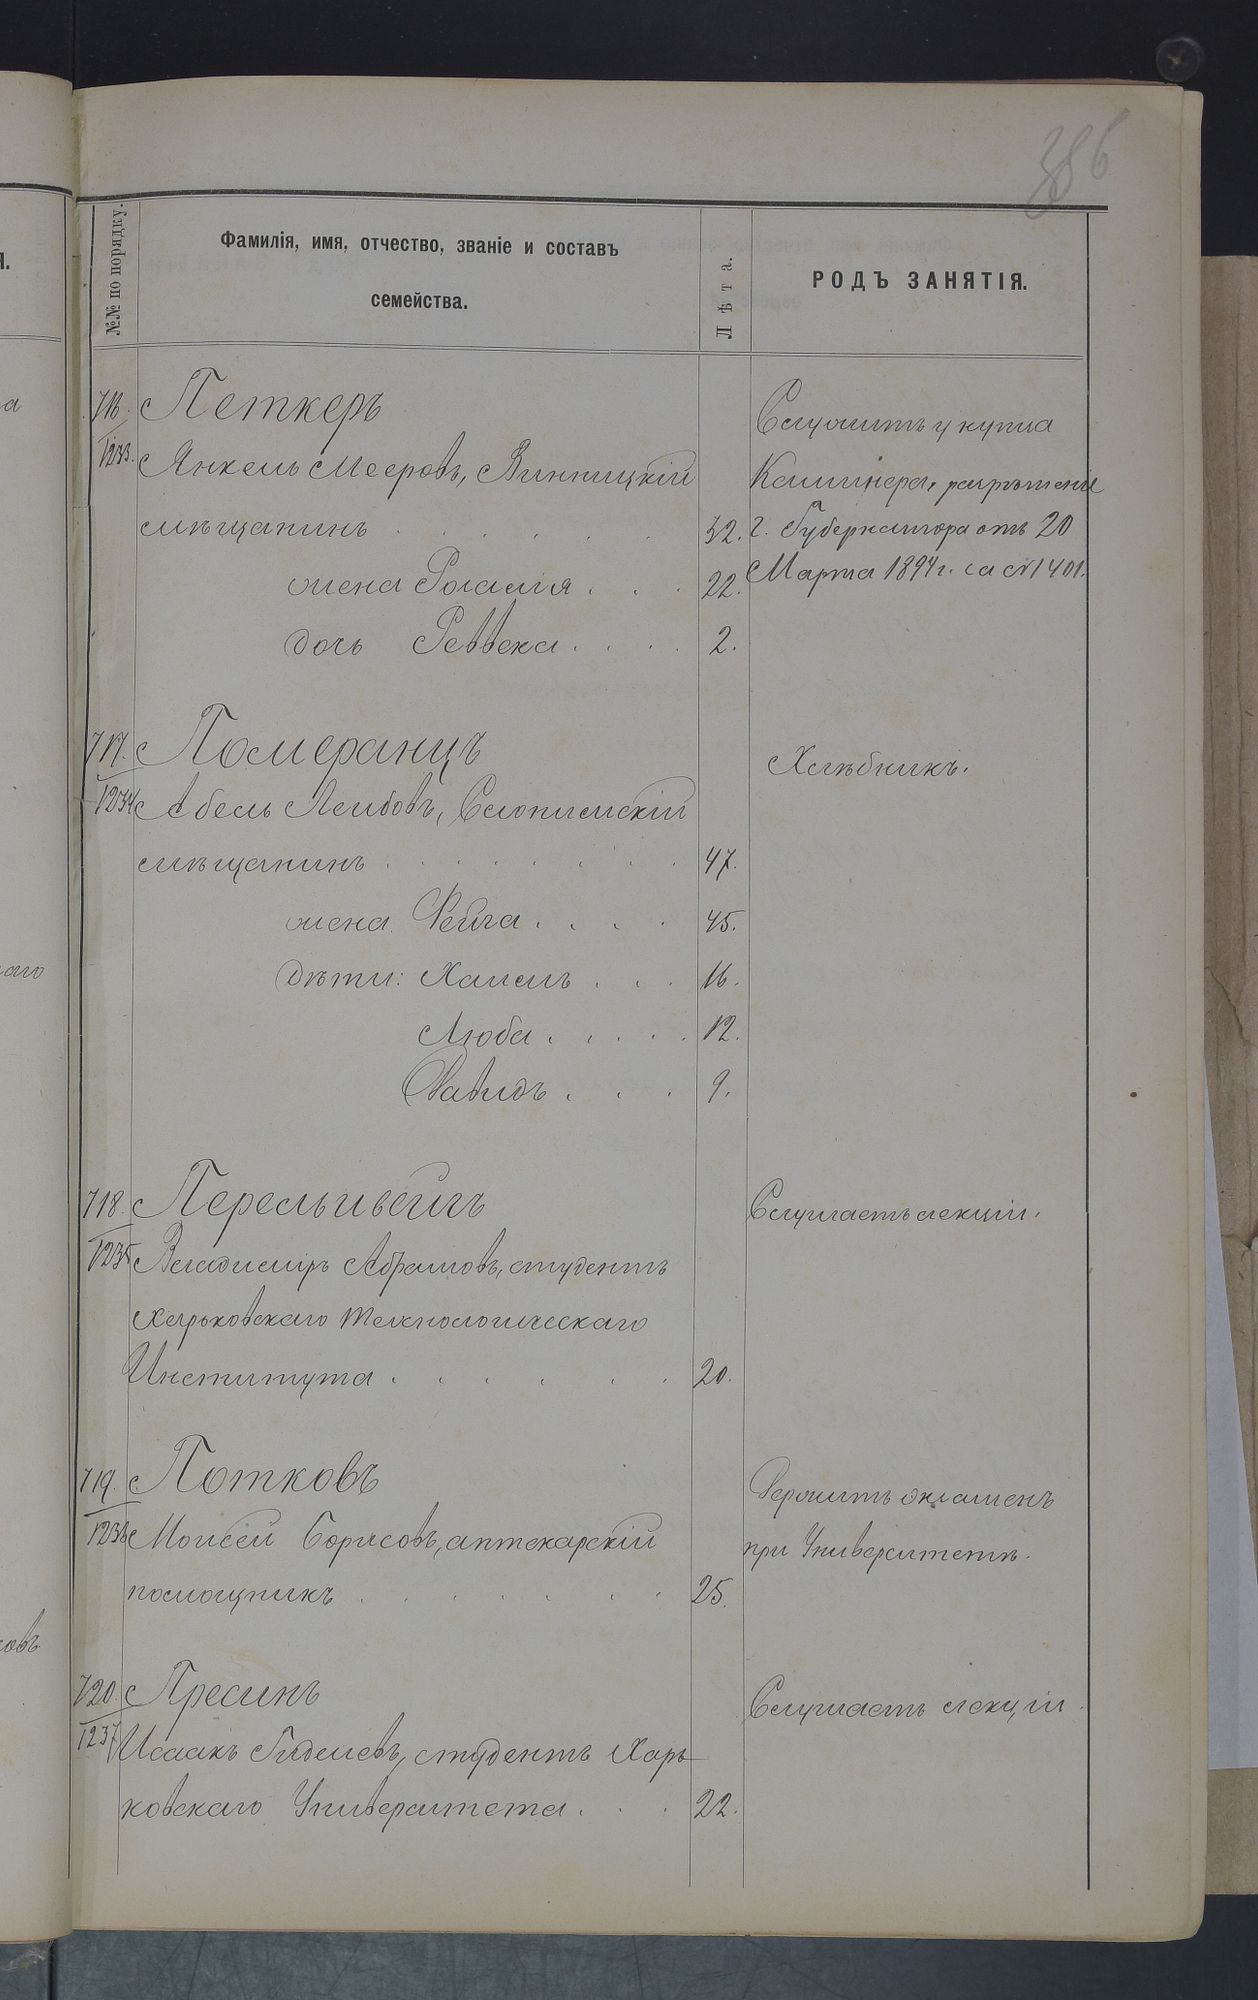 386
№№ по порядку.
Фамилія, имя, отчество, званіе и составъ
семейства.
Лѣта.
РОДЪ ЗАНЯТІЯ.
716. Петкеръ
1233. Янкель Мееровъ, Винницкій
мѣщанинъ . . . . . . 32.
жена Розалія . . . 22.
дочь Реввека . . . . 2.
Служитъ у купца
разрѣшеніе
г. Губернатора отъ 20
Марта 1894 г. за № 1401.
717. Померанцъ
1234 Абель Лейбовъ, Слонимскій
мѣщанинъ . . . . . . . . 47.
жена Фейга . . . . 45.
дѣти: Хаимъ . . . 16.
Люба . . . . . 12.
Давидъ . . . 9.
Хлѣбникъ.
718. Перельцвейгъ
1235 Владиміръ Абрамовъ, студентъ
Харьковскаго Технологическаго
Института . . . . . . 20.
Слушаетъ лекціи.
719. Потковъ
1236 Моисей Борисовъ, аптекарскій
помощникъ . . . . . . . 25.
Держитъ экзаменъ
при Университетѣ.
720. Пресинъ
1237 Исаакъ студентъ Харь-
ковскаго Университета . . . 22.
Слушаетъ лекціи.